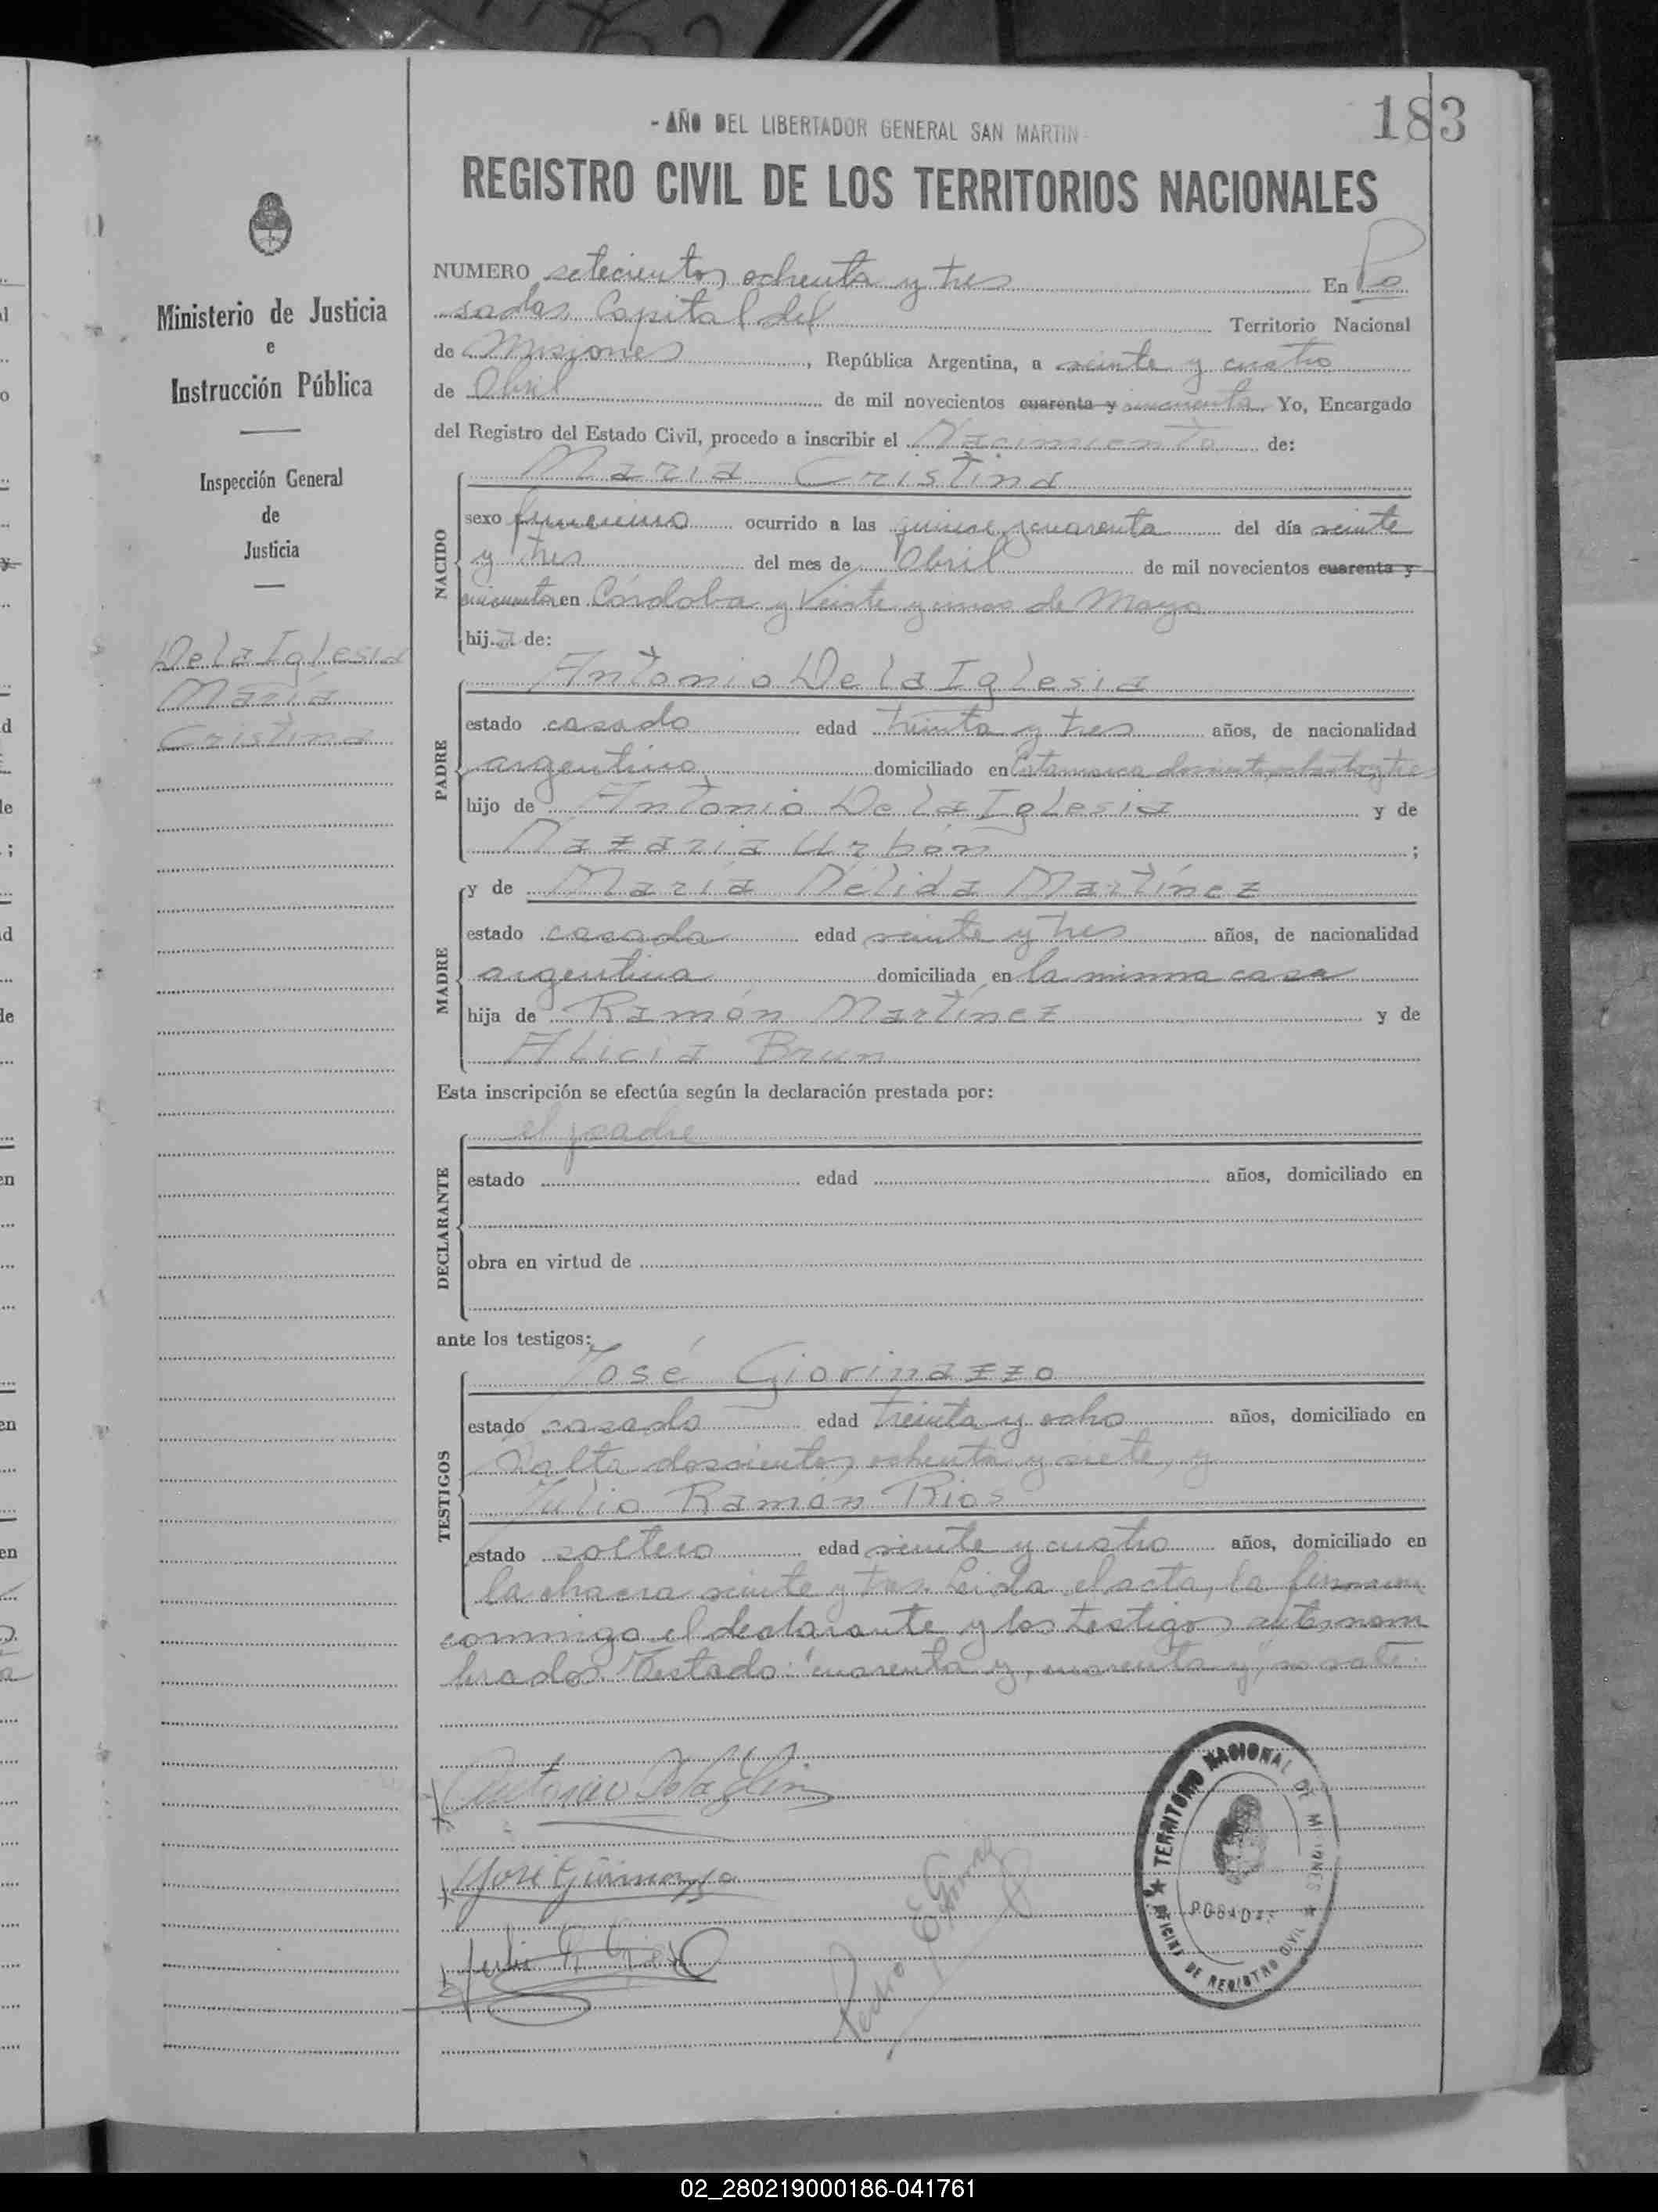 183
- AÑO DEL LIBERTADOR GENERAL SAN MARTIN -
REGISTRO CIVIL DE LOS TERRITORIOS NACIONALES
Ministerio de Justicia
e
Instrucción Pública
Inspección General
de
Justicia
De la Iglesia
María
Cristina
NUMERO setecientos ochenta y tres En Po
sadas, Capital del Territorio Nacional
de Misiones, República Argentina, a veinte y cuatro
de Abril de mil novecientos cuarenta y cincuenta Yo, Encargado
del Registro del Estado Civil, procedo a inscribir el Nacimiento de:
NACIDO
María Cristina
sexo femenino ocurrido a las quince y cuarenta del día veinte
y tres del mes de Abril de mil novecientos cuarenta y
cincuenta en Córdoba y Veinte y cinco de Mayo
hija de:
PADRE
Antonio De la Iglesia
estado casado edad treinta y tres años, de nacionalidad
argentino domiciliado en
hijo de Antonio De la Iglesia y de
Nazaria Urbón ;
MADRE
y de María Nélida Martínez
estado casada edad veinte y tres años, de nacionalidad
argentina domiciliada en la misma casa
hija de Ramón Martínez y de
Alicia Brum
Esta inscripción se efectúa según la declaración prestada por:
DECLARANTE
el padre
estado edad años, domiciliado en
obra en virtud de
ante los testigos:
TESTIGOS
José Giovinazzo
estado casado edad treinta y ocho años, domiciliado en
Salta doscientos ochenta y siete, y
Julio Ramón Rios
estado soltero edad veinte y cuatro años, domiciliado en
la chacra veinte y tres. Leida el acta, la firman
conmigo el declarante y los testigos antes nom
brados. Testado: "cuarenta y, cuarenta y", no vale.
Antonio De la Iglesia
José Giovinazzo
Julio R. Rios
Pedro E. Gomez
TERRITORIO NACIONAL DE MISIONES
POSADAS
OFICINA DE REGISTRO CIVIL
02_280219000186-041761